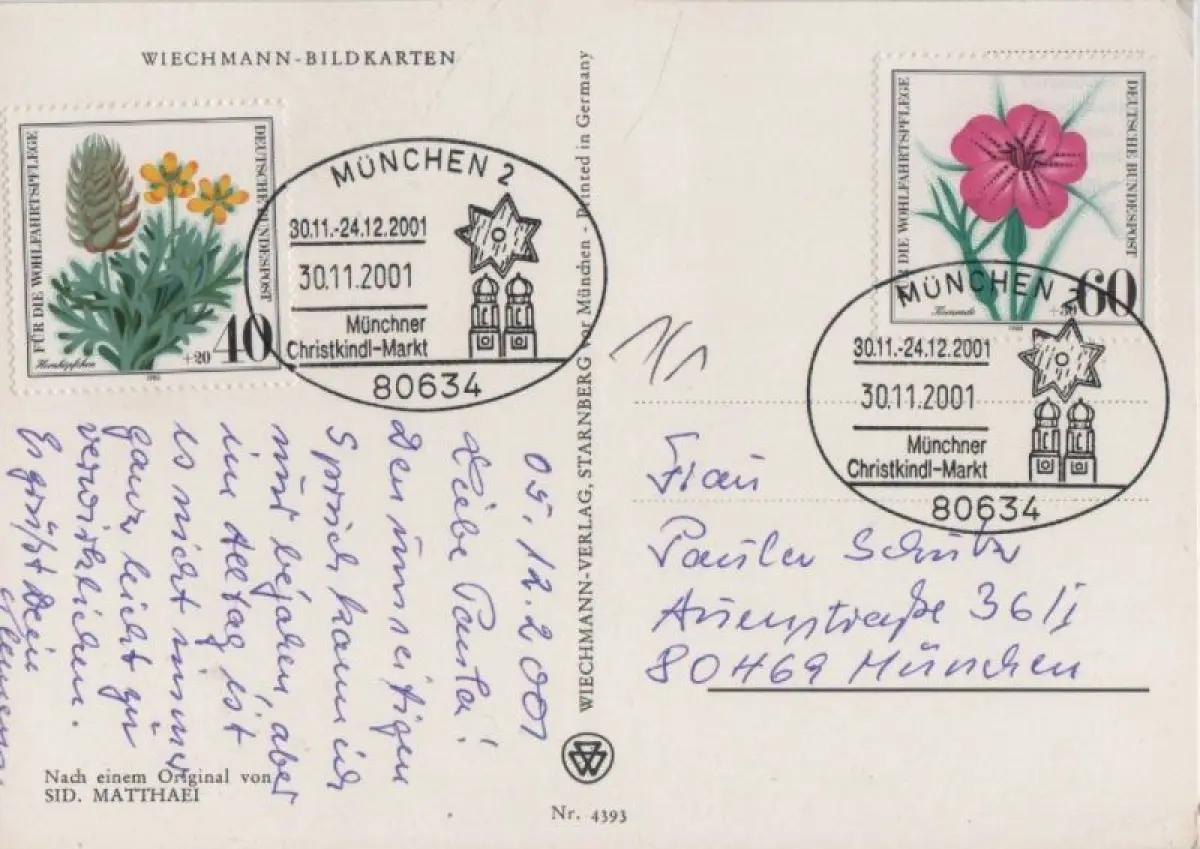 WIECHMANN-BILDKARTEN
FÜR DIE WOHLFAHRTSPFLEGE
DEUTSCHE BUNDESPOST
+20 40
Hornköpfchen
1980
MÜNCHEN 2
30.11.-24.12.2001
30.11.2001
Münchner
Christkindl-Markt
80634
05.12.2001
Liebe
Den umseitigen
Spruch kann ich
nur bejahen, aber
im Alltag ist
es nicht immer
ganz leicht zu
verwirklichen.
Es grüßt Dein
Nach einem Original von
SID. MATTHAEI
WIECHMANN-VERLAG, STARNBERG vor München - Printed in Germany
Nr. 4393
FÜR DIE WOHLFAHRTSPFLEGE
DEUTSCHE BUNDESPOST
60
Kornrade
1980
MÜNCHEN 2
30.11.-24.12.2001
30.11.2001
Münchner
Christkindl-Markt
80634
Frau
Schutz
Auenstraße 36/I
80469 München